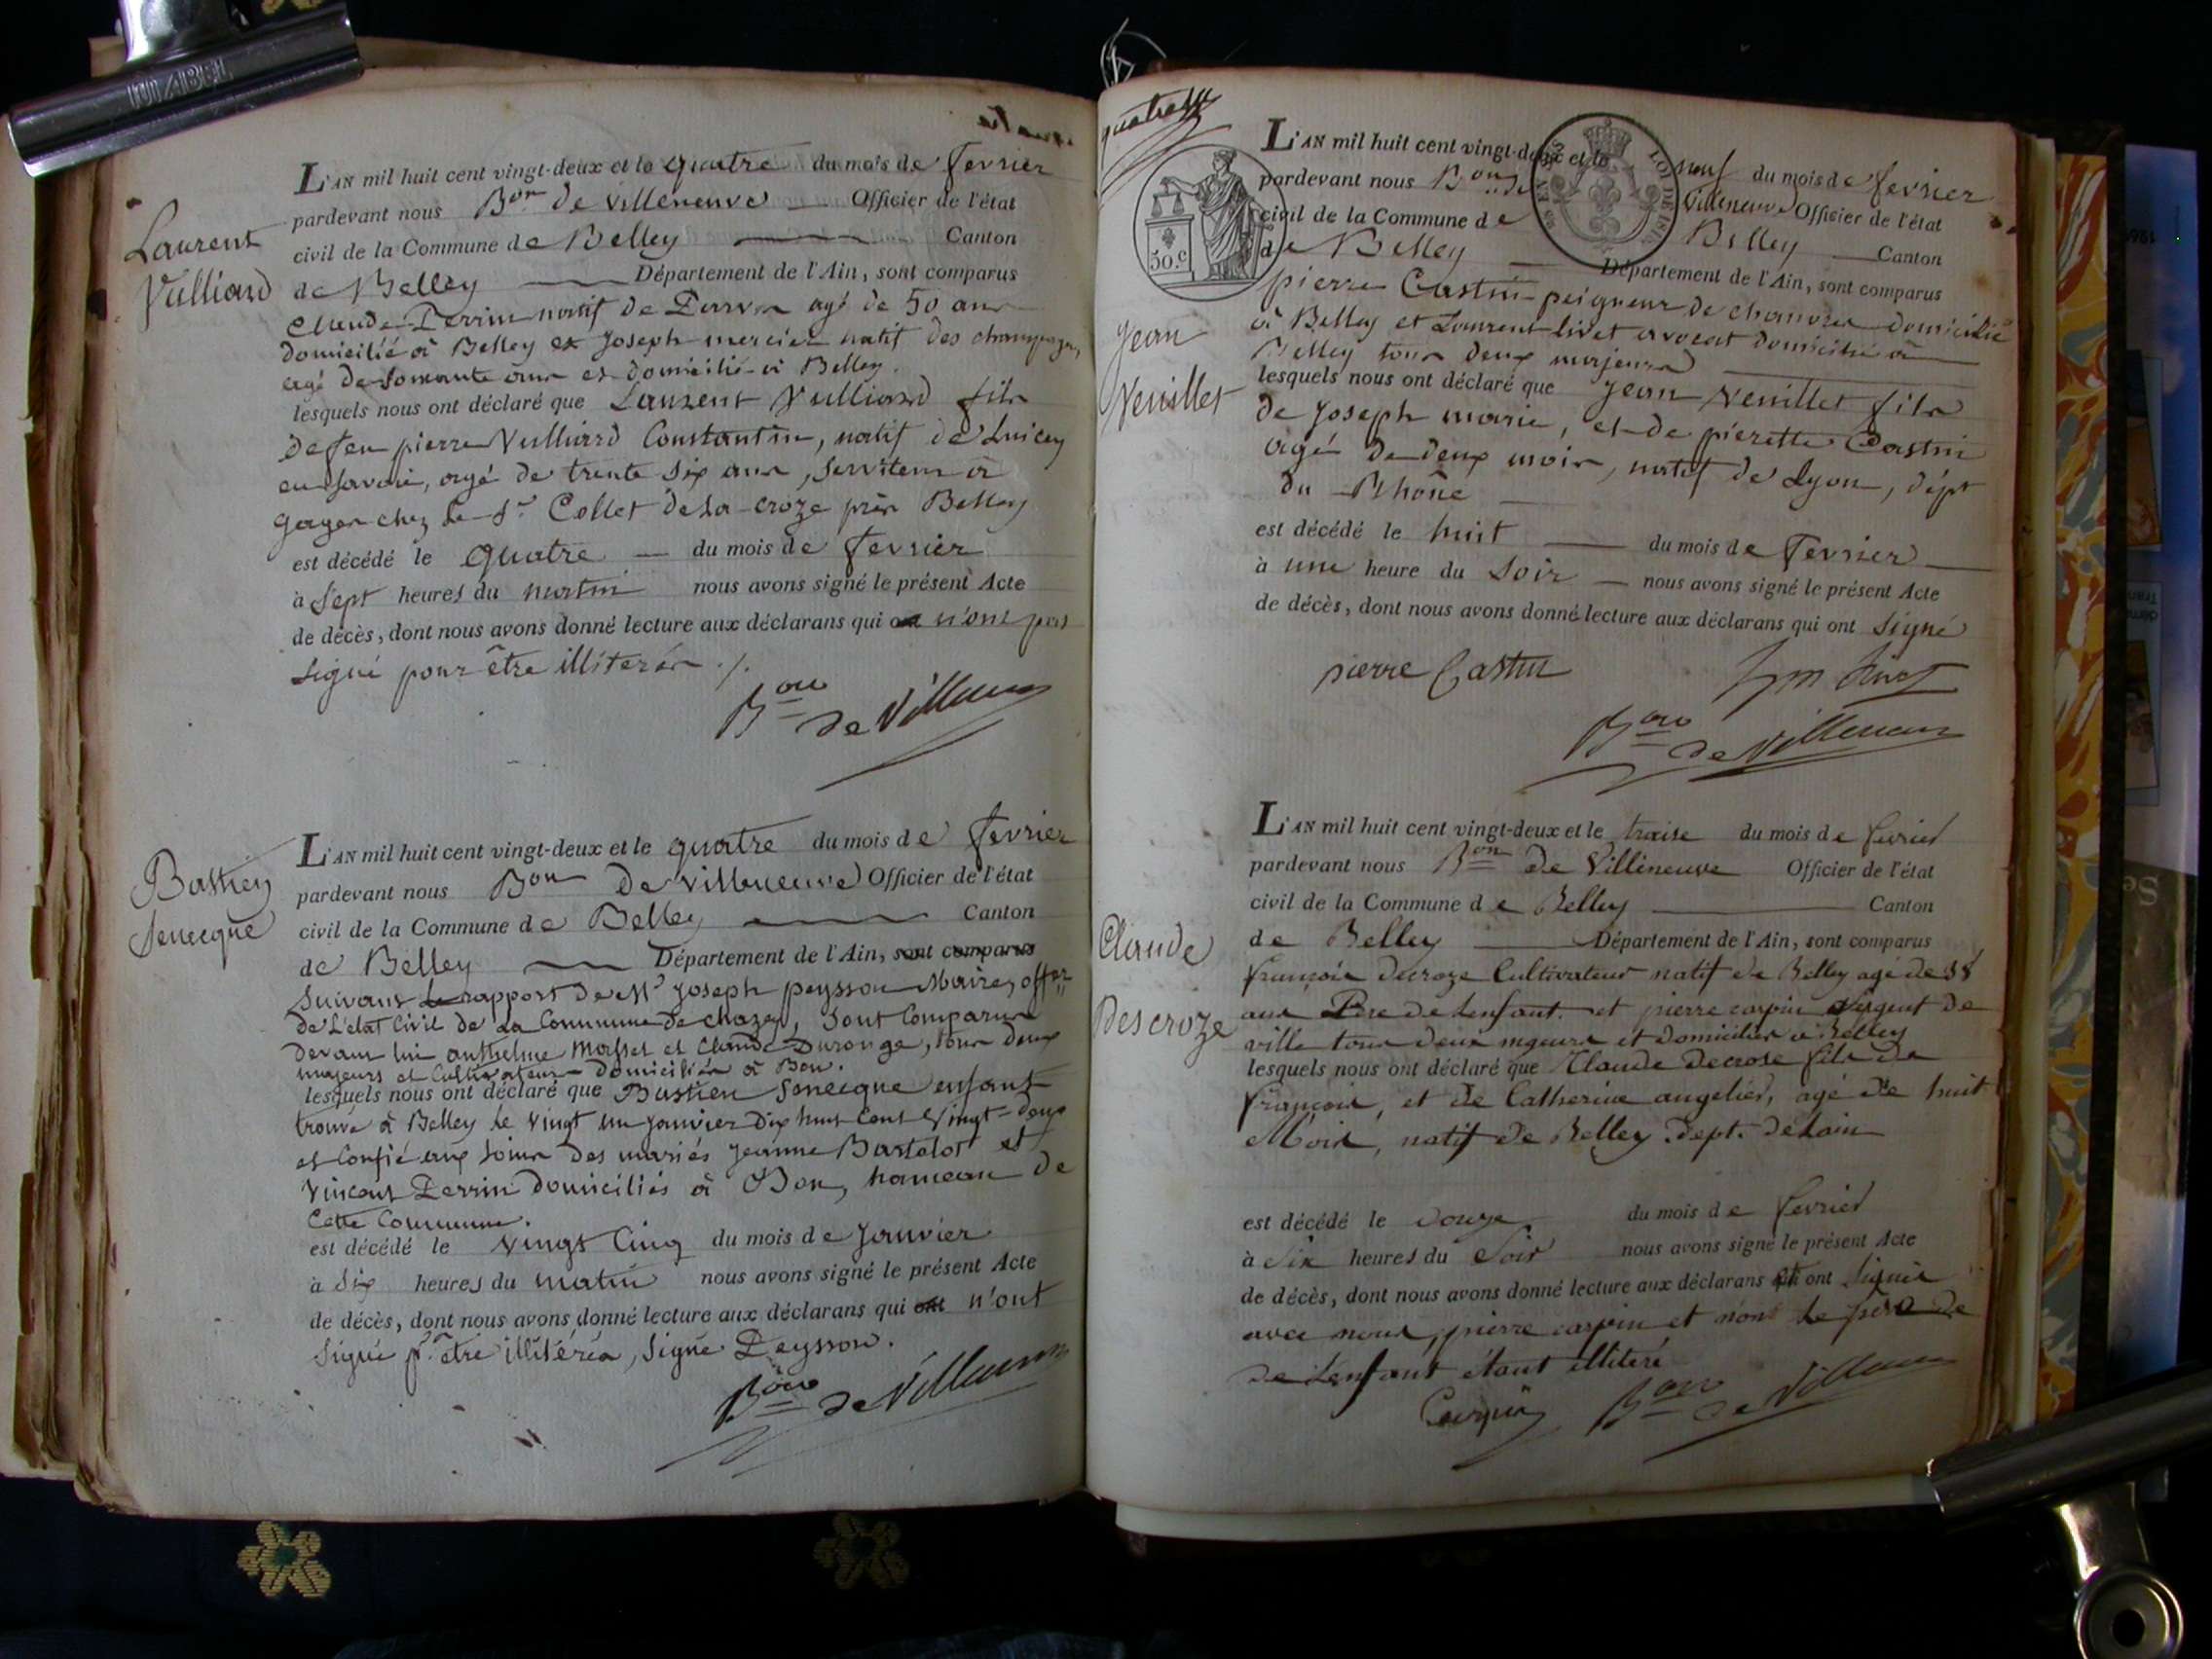 Laurent
Vulliard
L'AN mil huit cent vingt-deux et le quatre du mois de fevrier
pardevant nous Bon de Villeneuve Officier de l'état
civil de la Commune de Belley Canton
de Belley Département de l'Ain, sont comparus
Claude Perrin natif de agé de 50 ans
domicilié à Belley et Joseph mercier natif des champagne,
agé de soixante ans et domicilié à Belley.
lesquels nous ont déclaré que Laurent Vulliard fils
de feu pierre Vulliard Constantin, natif de Lucey
en Savoie, agé de trente six ans, serviteur à
gages chez le Sr. Collet de la croze près Belley
est décédé le quatre du mois de fevrier
à Sept heures du matin nous avons signé le présent Acte
de décès, dont nous avons donné lecture aux déclarans qui ont n'ont pas
signé pour être illiterés ./.
Bon de Villeneuve
Bastien
Senecque
L'AN mil huit cent vingt-deux et le quatre du mois de fevrier
pardevant nous Bon De Villeneuve Officier de l'état
civil de la Commune de Belley Canton
de Belley Département de l'Ain, sont comparus
Suivant le rapport de Mr Joseph peysson Maire, offer
de L'état Civil de La Commune de chazey, Sont Comparus
devant lui anthelme Masset et Claude Duronge, tous deux
majeurs et Cultivateurs domiciliés à Bon.
lesquels nous ont déclaré que Bastien Senecque enfant
trouvé à Belley le vingt un janvier Dix huit Cent Vingt=deux
et Confié aux soins des mariés Jeanne Bartelot et
Vincent Perrin domiciliés à Bon, hameau de
Cette Commune.
est décédé le vingt Cinq du mois de Janvier
à Six heures du matin nous avons signé le présent Acte
de décès, dont nous avons donné lecture aux déclarans qui ont n'ont
Signé pr. être illitérés, Signé Peysson.
Bon de Villeneuve
50.c
LOI DE 1816
Jean
Veuillet
L'AN mil huit cent vingt-deux et le neuf du mois de fevrier
pardevant nous Bon de Villeneuve Officier de l'état
civil de la Commune de Belley Canton
de Belley Département de l'Ain, sont comparus
pierre Castin peigneur de chanvre domicilié
à Belley et Laurent livet avocat domicilié à
Belley tous deux majeurs
lesquels nous ont déclaré que Jean Veuillet fils
de Joseph marie, et de pierette Castin
agé de deux mois, natif de Lyon, dépt
du Rhône
est décédé le huit du mois de Fevrier
à une heure du Soir nous avons signé le présent Acte
de décès, dont nous avons donné lecture aux déclarans qui ont Signé
pierre Castin
Bon de Villeneuve
Claude
Descroze
L'AN mil huit cent vingt-deux et le traise du mois de fevrier
pardevant nous Bon de Villeneuve Officier de l'état
civil de la Commune de Belley Canton
de Belley Département de l'Ain, sont comparus
françois decroze Cultivateur natif de Belley agé de 38
ans Père de Lenfant. et pierre carpin Sergent de
ville tous deux mgeurs et domiciliés à Belley
lesquels nous ont déclaré que Claude Decrose fils de
françois, et de Catherine angelier, agé de huit
Mois, natif de Belley. dept. de Lain
est décédé le Douze du mois de fevrier
à Six heures du Soir nous avons signé le présent Acte
de décès, dont nous avons donné lecture aux déclarans qui ont Signés
avec nous, pierre carpin et non le père de
de Lenfant étant illiteré
Carpin Bon de Villeneuve